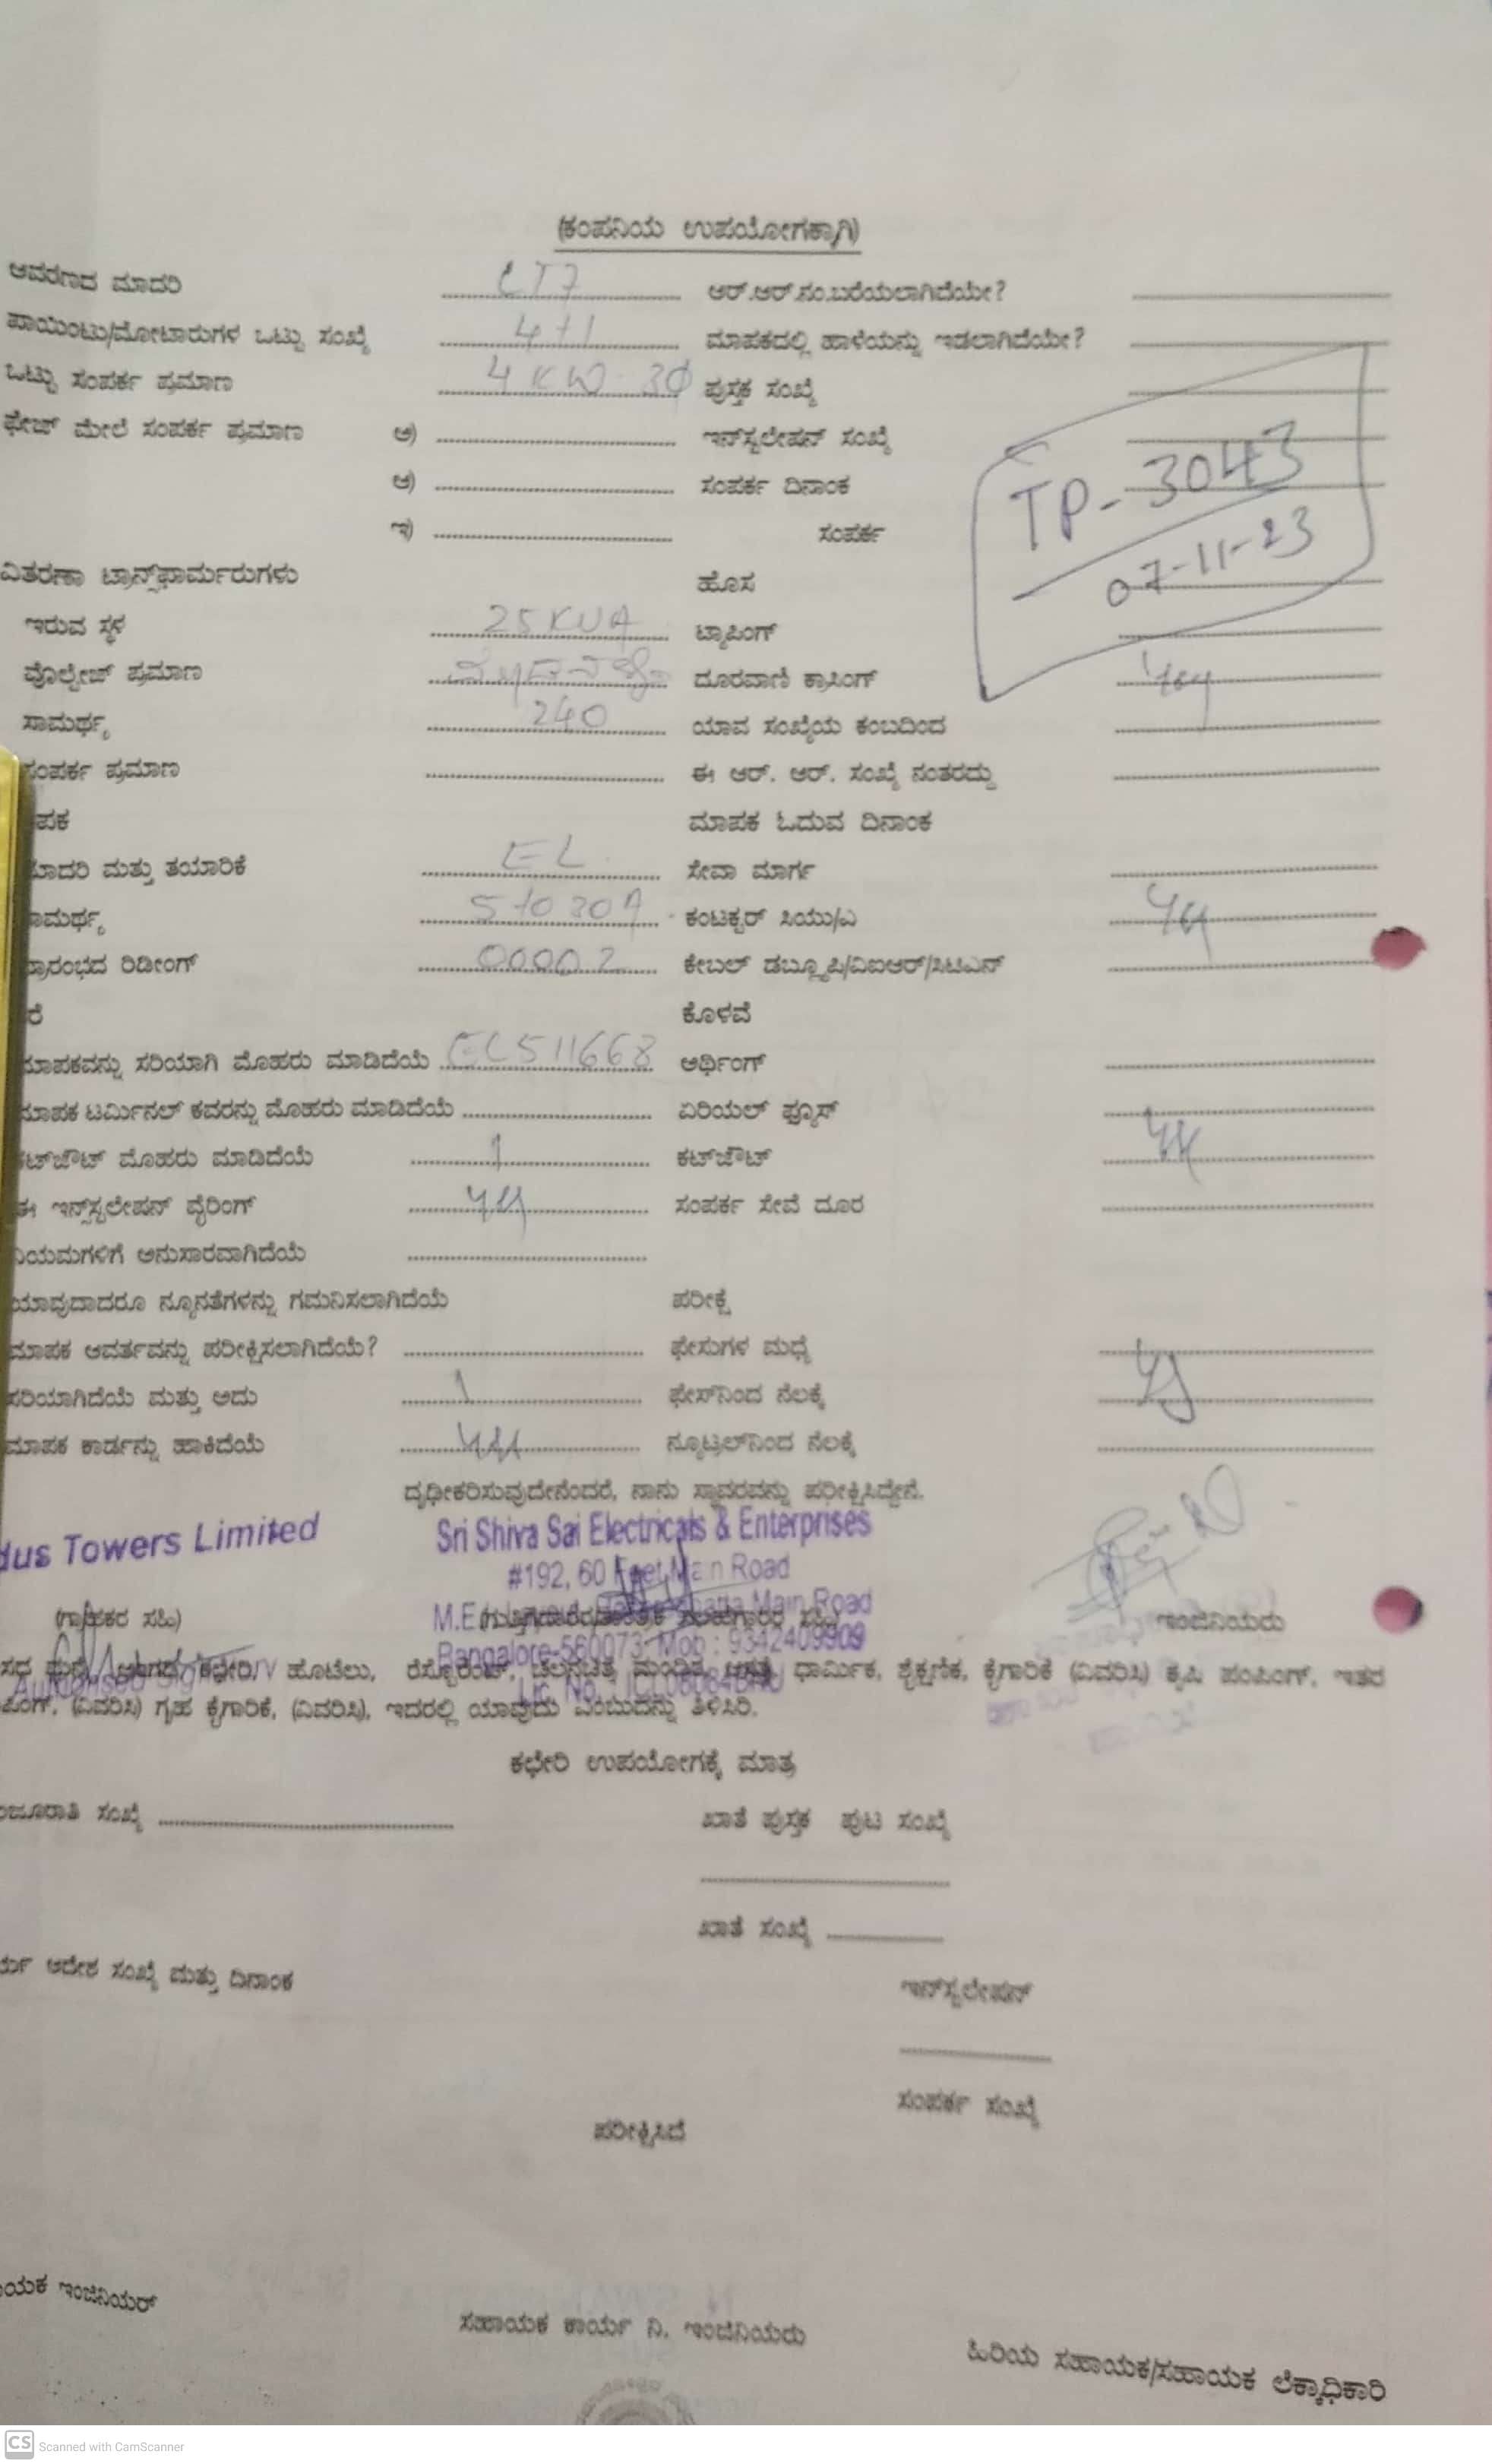 (ಕಂಪನಿಯ ಉಪಯೋಗಕ್ಕಾಗಿ)
ಆವರಣದ ಮಾದರಿ LT7 ಆರ್.ಆರ್.ನಂ.ಬರೆಯಲಾಗಿದೆಯೇ?
ಪಾಯಿಂಟು/ಮೋಟಾರುಗಳ ಒಟ್ಟು ಸಂಖ್ಯೆ 4+1 ಮಾಪಕದಲ್ಲಿ ಹಾಳೆಯನ್ನು ಇಡಲಾಗಿದೆಯೇ?
ಒಟ್ಟು ಸಂಪರ್ಕ ಪ್ರಮಾಣ 4 KW 3Φ ಪುಸ್ತಕ ಸಂಖ್ಯೆ
ಫೇಜ್ ಮೇಲೆ ಸಂಪರ್ಕ ಪ್ರಮಾಣ ಅ) ಇನ್‌ಸ್ಟಲೇಷನ್ ಸಂಖ್ಯೆ
ಆ) ಸಂಪರ್ಕ ದಿನಾಂಕ
TP-3043
07-11-23
ಇ) ಸಂಪರ್ಕ
ವಿತರಣಾ ಟ್ರಾನ್ಸ್‌ಫಾರ್ಮರುಗಳು ಹೊಸ
ಇರುವ ಸ್ಥಳ 25 KVA ಟ್ಯಾಪಿಂಗ್
ವೊಲ್ಟೇಜ್ ಪ್ರಮಾಣ ದೂರವಾಣಿ ಕ್ರಾಸಿಂಗ್
ಸಾಮರ್ಥ್ಯ 240 ಯಾವ ಸಂಖ್ಯೆಯ ಕಂಬದಿಂದ
ಸಂಪರ್ಕ ಪ್ರಮಾಣ ಈ ಆರ್. ಆರ್. ಸಂಖ್ಯೆ ನಂತರದ್ದು
ಪಕ ಮಾಪಕ ಓದುವ ದಿನಾಂಕ
ಮಾದರಿ ಮತ್ತು ತಯಾರಿಕೆ EL ಸೇವಾ ಮಾರ್ಗ
ಾಮರ್ಥ್ಯ 5 to 30A ಕಂಟಕ್ಟರ್ ಸಿಯು/ಎ
ಪ್ರಾರಂಭದ ರಿಡೀಂಗ್ 00002 ಕೇಬಲ್ ಡಬ್ಲ್ಯೂಪಿ/ವಿಐಆರ್/ಸಿಟಿಎನ್
ರೆ ಕೊಳವೆ
ಮಾಪಕವನ್ನು ಸರಿಯಾಗಿ ಮೊಹರು ಮಾಡಿದೆಯೆ EL511668 ಅರ್ಥಿಂಗ್
ಮಾಪಕ ಟರ್ಮಿನಲ್ ಕವರನ್ನು ಮೊಹರು ಮಾಡಿದೆಯೆ ಏರಿಯಲ್ ಫ್ಯೂಸ್
ಕಟ್‌ಔಟ್ ಮೊಹರು ಮಾಡಿದೆಯೆ ಕಟ್‌ಔಟ್
ಈ ಇನ್‌ಸ್ಟಲೇಷನ್ ವೈರಿಂಗ್ ಸಂಪರ್ಕ ಸೇವೆ ದೂರ
ನಿಯಮಗಳಿಗೆ ಅನುಸಾರವಾಗಿದೆಯೆ
ಯಾವುದಾದರೂ ನ್ಯೂನತೆಗಳನ್ನು ಗಮನಿಸಲಾಗಿದೆಯೆ ಪರೀಕ್ಷೆ
ಮಾಪಕ ಆವರ್ತವನ್ನು ಪರೀಕ್ಷಿಸಲಾಗಿದೆಯೆ? ಫೇಸುಗಳ ಮಧ್ಯೆ
ಸರಿಯಾಗಿದೆಯೆ ಮತ್ತು ಅದು ಫೇಸ್‌ನಿಂದ ನೆಲಕ್ಕೆ
ಮಾಪಕ ಕಾರ್ಡನ್ನು ಹಾಕಿದೆಯೆ ನ್ಯೂಟ್ರಲ್‌ನಿಂದ ನೆಲಕ್ಕೆ
ದೃಢೀಕರಿಸುವುದೇನೆಂದರೆ, ನಾನು ಸ್ಥಾವರವನ್ನು ಪರೀಕ್ಷಿಸಿದ್ದೇನೆ.
dus Towers Limited
Sri Shiva Sai Electricals & Enterprises
#192, 60 Feet Main Road
Main Road
Bangalore-560073, Mob : 9342409909
(ಗ್ರಾಹಕರ ಸಹಿ) ಇಂಜಿನಿಯರು
Authorised Signatory
ಹೊಟೆಲು, ರೆಸ್ಟೋರೆಂಟ್, ಧಾರ್ಮಿಕ, ಶೈಕ್ಷಣಿಕ, ಕೈಗಾರಿಕೆ (ವಿವರಿಸಿ) ಕೃಷಿ ಪಂಪಿಂಗ್, ಇತರ
ಪಿಂಗ್, (ವಿವರಿಸಿ) ಗೃಹ ಕೈಗಾರಿಕೆ, (ವಿವರಿಸಿ), ಇದರಲ್ಲಿ ಯಾವುದು ಎಂಬುದನ್ನು ತಿಳಿಸಿರಿ.
ಕಛೇರಿ ಉಪಯೋಗಕ್ಕೆ ಮಾತ್ರ
ಂಜೂರಾತಿ ಸಂಖ್ಯೆ ಖಾತೆ ಪುಸ್ತಕ ಪುಟ ಸಂಖ್ಯೆ
ಖಾತೆ ಸಂಖ್ಯೆ
ರ್ಯ ಆದೇಶ ಸಂಖ್ಯೆ ಮತ್ತು ದಿನಾಂಕ
ಇನ್‌ಸ್ಟಲೇಷನ್
ಸಂಪರ್ಕ ಸಂಖ್ಯೆ
ಪರೀಕ್ಷಿಸಿದೆ
ಾಯಕ ಇಂಜಿನಿಯರ್
ಸಹಾಯಕ ಕಾರ್ಯ ನಿ. ಇಂಜಿನಿಯರು
ಹಿರಿಯ ಸಹಾಯಕ/ಸಹಾಯಕ ಲೆಕ್ಕಾಧಿಕಾರಿ
CS Scanned with CamScanner